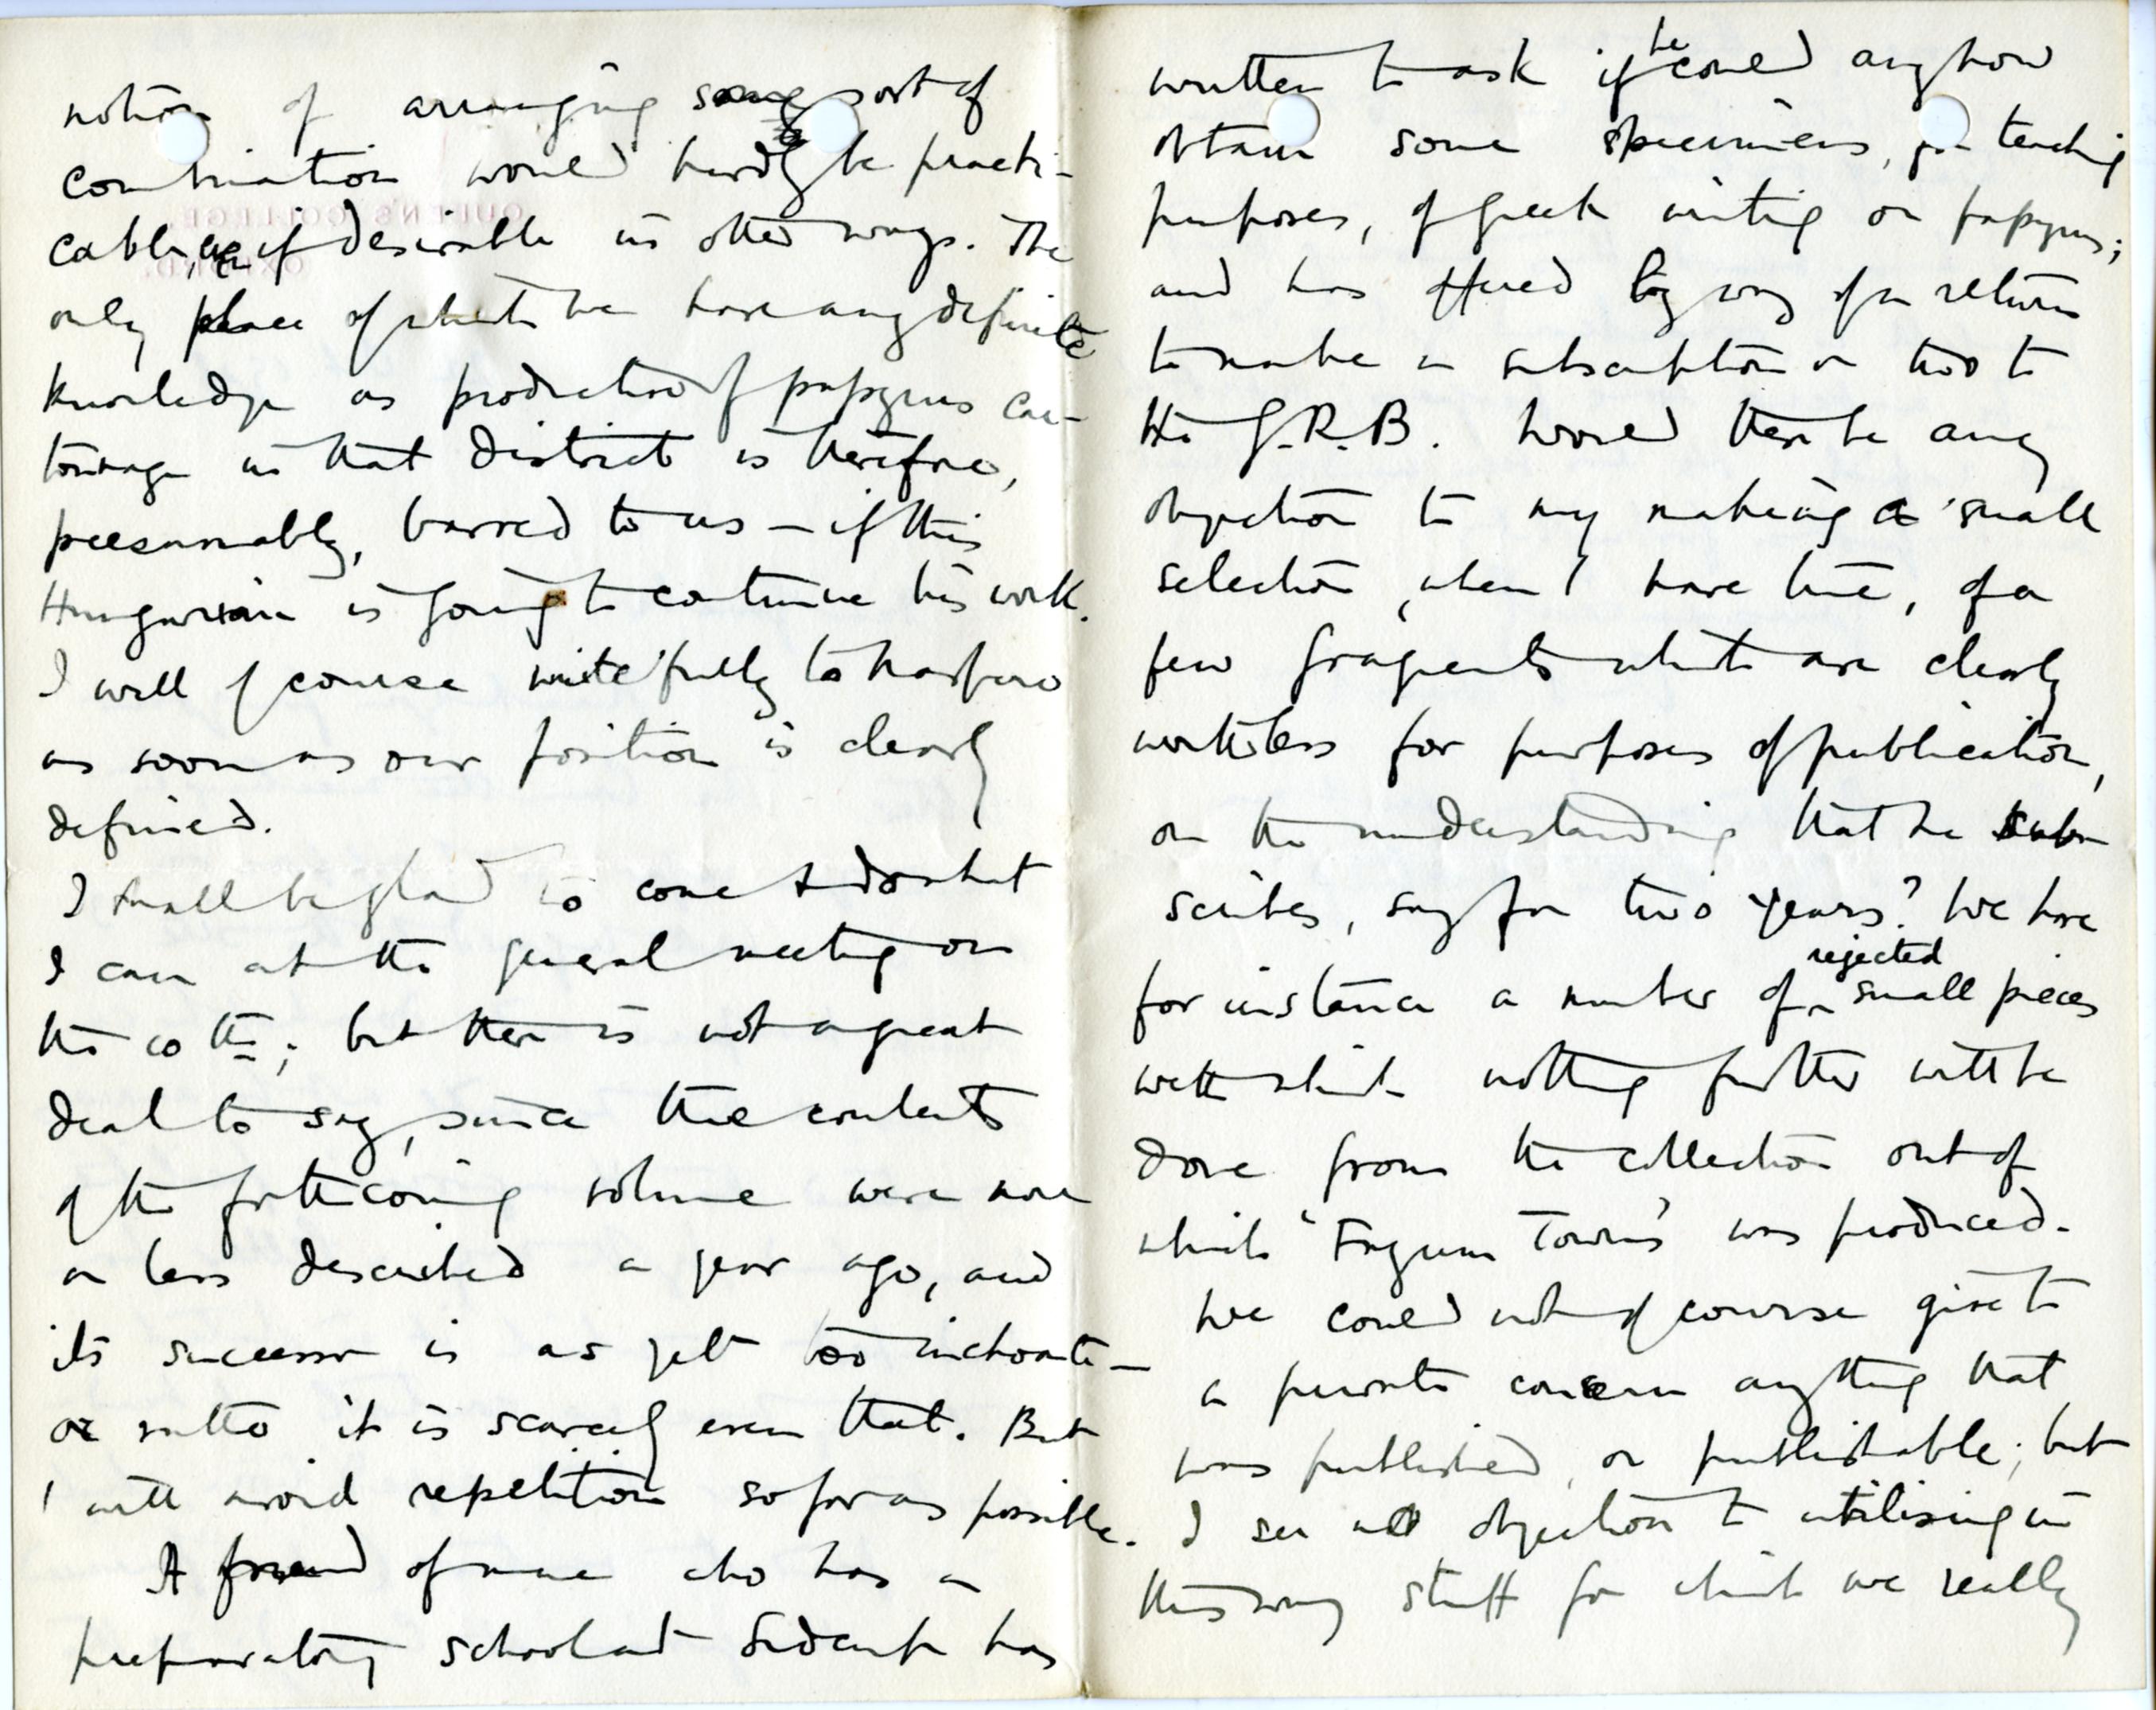 notion of arranging some sort of
combination would hardly be practi-
cable, even if desirable in other ways. The
only place of which we have any definite
knowledge as productive of papyrus car-
tonnage in that district is therefore,
presumably, barred to us – if this
Hungarian is going to continue his work.
I will of course write fully to Maspero
as soon as our position is clearly
defined.
I shall be glad to come & do what
I can at the general meeting on
the 10th; but there is not a great
deal to say, since the contents
of the forthcoming volume were more
or less described a year ago, and
its successor is as yet too inchoate –
or rather it is scarcely even that. But
I will avoid repetition so far as possible.
A friend of mine who has a
preparatory school at Sidcup has
written to ask if he could anyhow
obtain some specimens, for teaching
purposes, of Greek writing on papyrus;
and has offered by way of a return
to make a subscription or two to
the G.R.B. Would there be any
objection to my making a small
selection, when I have time, of a
few fragments which are clearly
worthless for purposes of publication,
on the understanding that he sub-
scribes, say for two years? We have
for instance a number of rejected small pieces
with which nothing further will be
done from the collection out of
which 'Fayum Towns' was produced.
We could not of course give to
a private concern anything that
was published, or publishable; but
I see no objection to utilising in
this way stuff for which we really
QUEEN'S COLLEGE,
OXFORD.